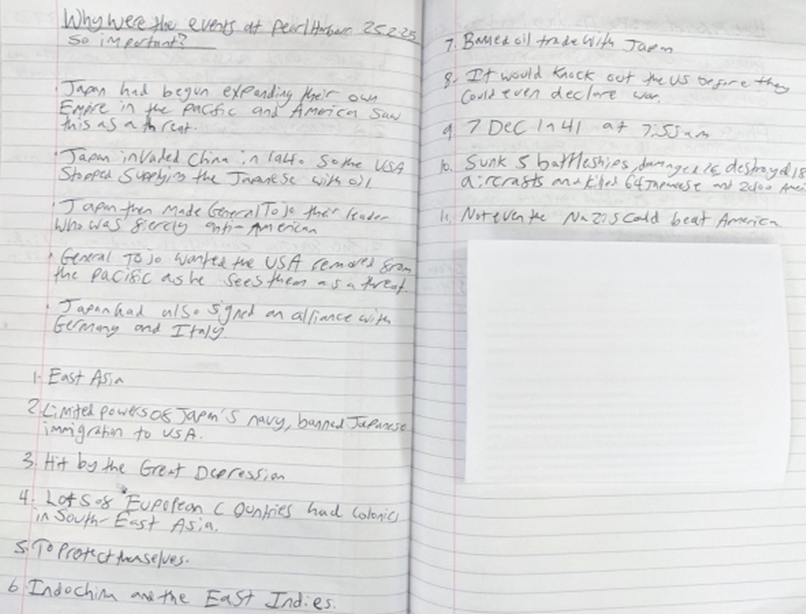 Why were the events at pearl Harbour 25.2.25
so important?
· Japan had begun expanding their own
Empire in the pacific and America saw
this as a threat.
· Japan invaded China in 1940 so the USA
stopped supplying the Japanese with oil
· Japan then made General Tojo their leader
who was fiercly anti-American
· General Tojo wanted the USA removed from
the pacific as he sees them as a threat.
· Japan had also signed an alliance with
Germany and Italy.
1. East Asia
2. Limited powers of Japan's navy, banned Japanese
immigration to USA.
3. Hit by the Great Depression
4. Lots of European Countries had colonies
in South-East Asia.
5. To Protect themselves.
6. Indochina and the East Indies.
7. Banned oil trade with Japan
8. It would knock out the US before they
could even declare war.
9. 7 Dec 1941 at 7:55am
10. Sunk 5 battleships, damaged destroyed 18
aircrafts and killed 64 Japanese and 2400
11. Not even the Nazis could beat America